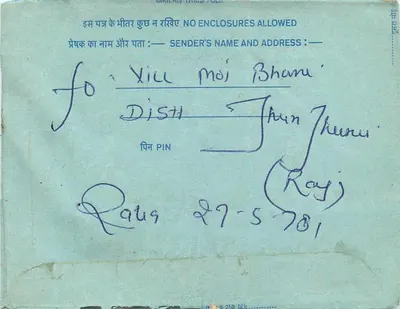 इस पत्र के भीतर कुछ न रखिए NO ENCLOSURES ALLOWED
प्रेषक का नाम और पता :— SENDER'S NAME AND ADDRESS :—
To Vill Moi Bharu
Distt Jhun Jhunu
पिन PIN
(Raj)
27-5-701